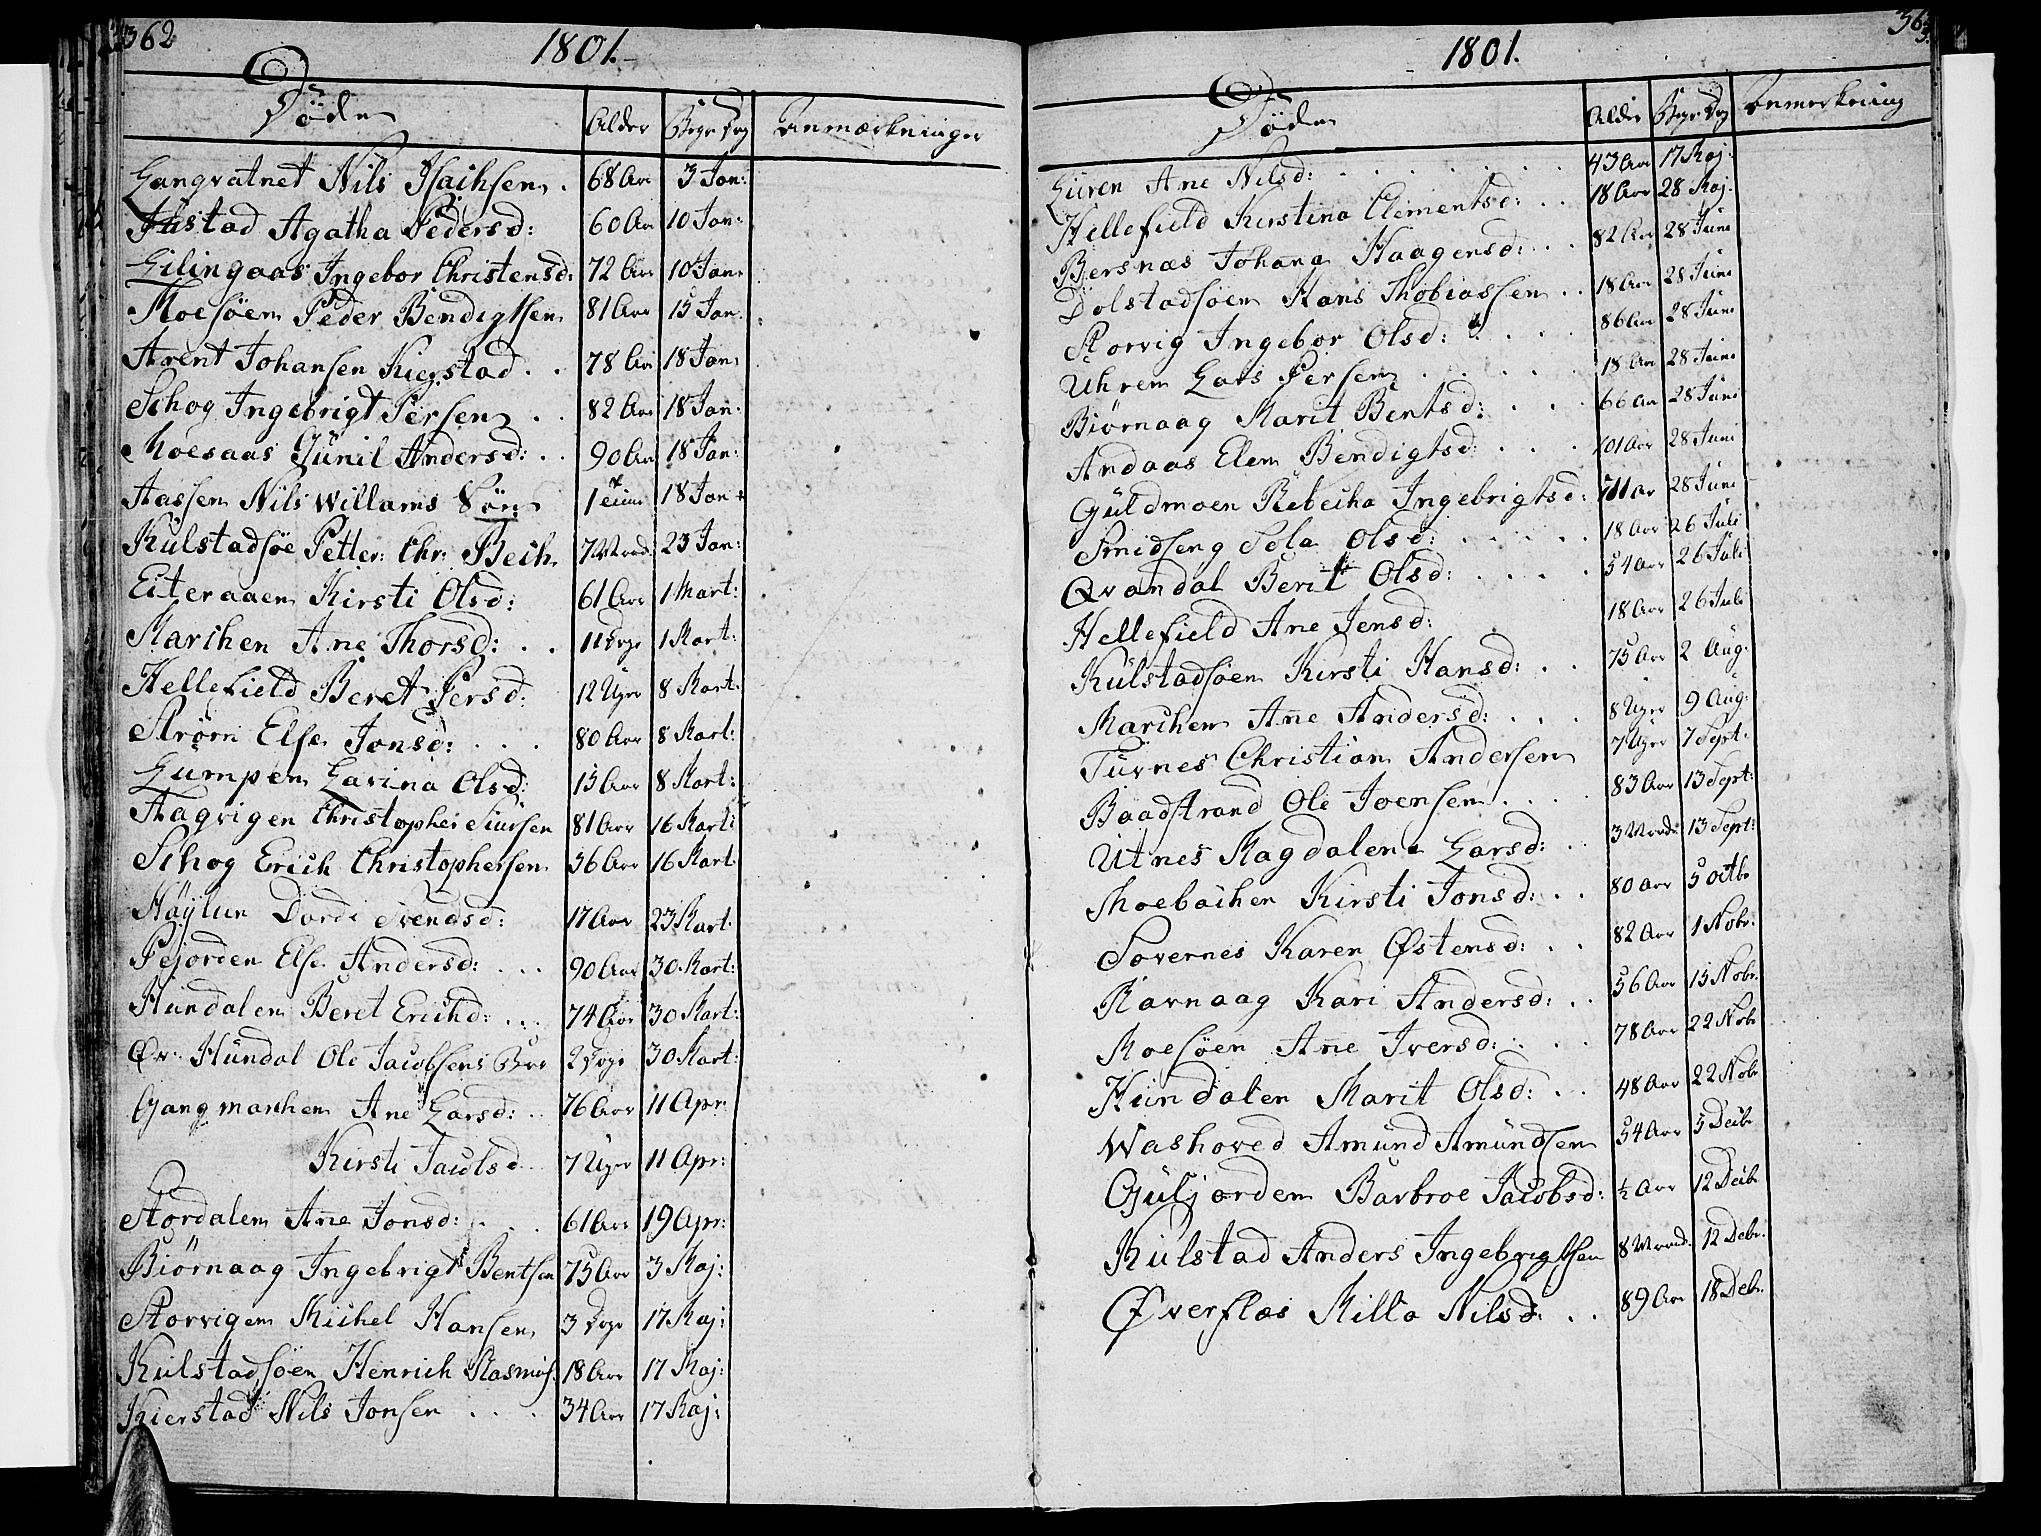 362
1801.
Døde Alder Begr Dag Anmærkninger
Langvatnet Nils Isachsen 68 Aar 3 Jan:
Justad Agatha Pedersd: 60 Aar 10 Jan:
Lilingaas Ingebor Christensd: 72 Aar 10 Jan:
Moesøen Peder Bendigtsen 81 Aar 15 Jan.
Arent Johansen Kierstad 78 Aar 18 Jan:
Schog Ingebrigt Persen 82 Aar 18 Jan:
Moesaas Günil Andersd: 90 Aar 18 Jan:
Aassen Nils Willams Søn 1 18 Jan
Kulstadsøe Petter Chr: Bech 7 Maand 23 Jan:
Eiteraaen Kirsti Olsd: 61 Aar 1 Mart:
Marchen Ane Thorsd: 11 Dage 1 Mart:
Hellefield Beret Persd: 12 Uger 8 Mart:
Strøm Else Jonsd: 80 Aar 8 Mart:
Lumpen Larina Olsd: 15 Aar 8 Mart:
Aagvigen Christopher Siursen 81 Aar 16 Mart:
Schog Erich Christophersen 36 Aar 16 Mart.
Høylun Dordi Svendsd: 17 Aar 23 Mart:
Pejorden Else Andersd: 90 Aar 30 Mart:
Hundalen Beret Erichd: 74 Aar 30 Mart:
Øv: Hündal Ole Jacobsens Bar 2 Dage 30 Mart:
Gangmarchen Ane Larsd: 76 Aar 11 Apr:
Kirsti Jacobsd 7 Uger 11 Apr:
Stordalen Ane Jonsd: 61 Aar 19 Apr:
Biørnaag Ingebrigt Bentsen 75 Aar 3 Maj:
Storvigen Michel Hansen 3 Dage 17 Maj:
Kulstadsøen Henrich Rasmus: 18 Aar 17 Maj:
Kierstad Nils Jonsen 34 Aar 17 Maj:
363.
1801.
Døde Alder Begr Dag Anmerkning
Luren Ane Nilsd: 43 Aar 17 Maj.
Hellefield Kirstina Clementsd: 18 Aar 28 Maj.
Bersnas Johana Haagensd: 82 Aar 28 Juni
Dolstadsøen Hans Thobiassen 18 Aar 28 Juni
Storvig Ingebor Olsd: 86 Aar 28 Juni
Uhren Lars Persen 18 Aar 28 Juni
Biørnaag Marit Bentsd: 66 Aar 28 Juni
Andaas Elen Bendigtsd: 101 Aar 28 Juni
Güldmoen Rebecha Ingebrigtsd: 28 Juni
Smidseng Sola Olsd: 18 Aar 26 Juli
Qvandal Berit Olsd: 54 Aar 26 Juli
Hellefield Ane Jensd: 18 Aar 26 Juli
Külstadsøen Kirsti Hansd: 75 Aar 2 Aug.
Marchen Ane Andersd: 8 Uger 9 Aug:
Turnes Christian Andersen 7 Uger 7 Sept.
Baadstrand Ole Joensen 83 Aar 13 Sept:
Utnes Magdalena Larsd: 3 Maad: 13 Sept:
Moebachen Kirsti Jonsd: 80 Aar 5 Octb.
Sovernes Karen Østensd: 82 Aar 1 Nobr.
Ravnaag Kari Andersd: 56 Aar 15 Nobr.
Moesøen Ane Iversd: 78 Aar 22 Nobr
Hündalen Marit Olsd: 48 Aar 22 Nobr
Washoved Amund Amündsen 54 Aar 5 Decbr
Güljorden Barbroe Jacobsd: ½ Aar 12 Decbr
Kulstad Anders Ingebrigtsen 8 Maad: 12 Debr.
Øverflas Milla Nilsd: 89 Aar 18 Debr.